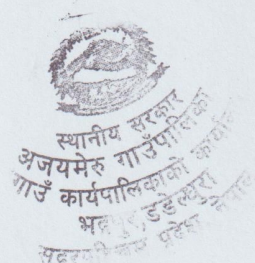 स्थानीय सरकार
अजयमेरु गाउँपालिका
गाउँ कार्यपालिकाको कार्यालय
भद्रपुर, डडेल्धुरा
सुदूरपश्चिम प्रदेश नेपाल